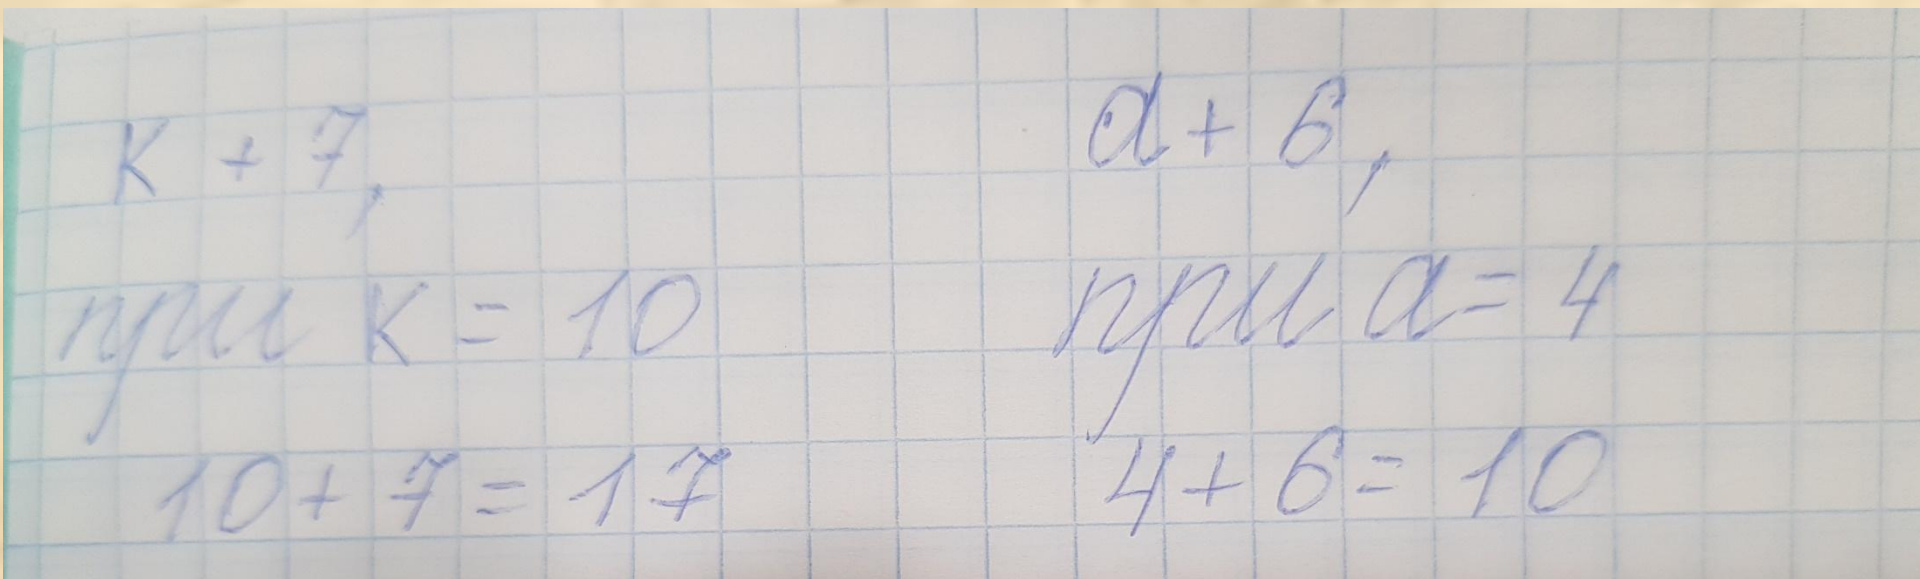 к + 7,
при к = 10
10 + 7 = 17
а + 6,
при а = 4
4 + 6 = 10